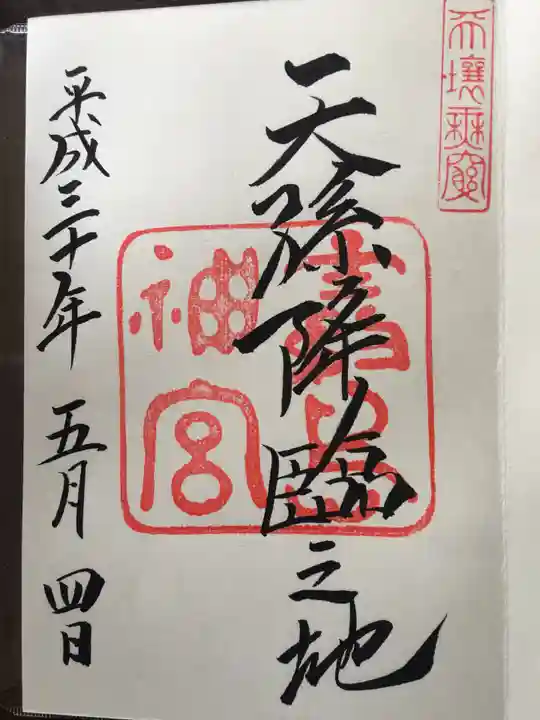 天壌無窮
天孫降臨之地
神宮
平成三十年 五月 四日